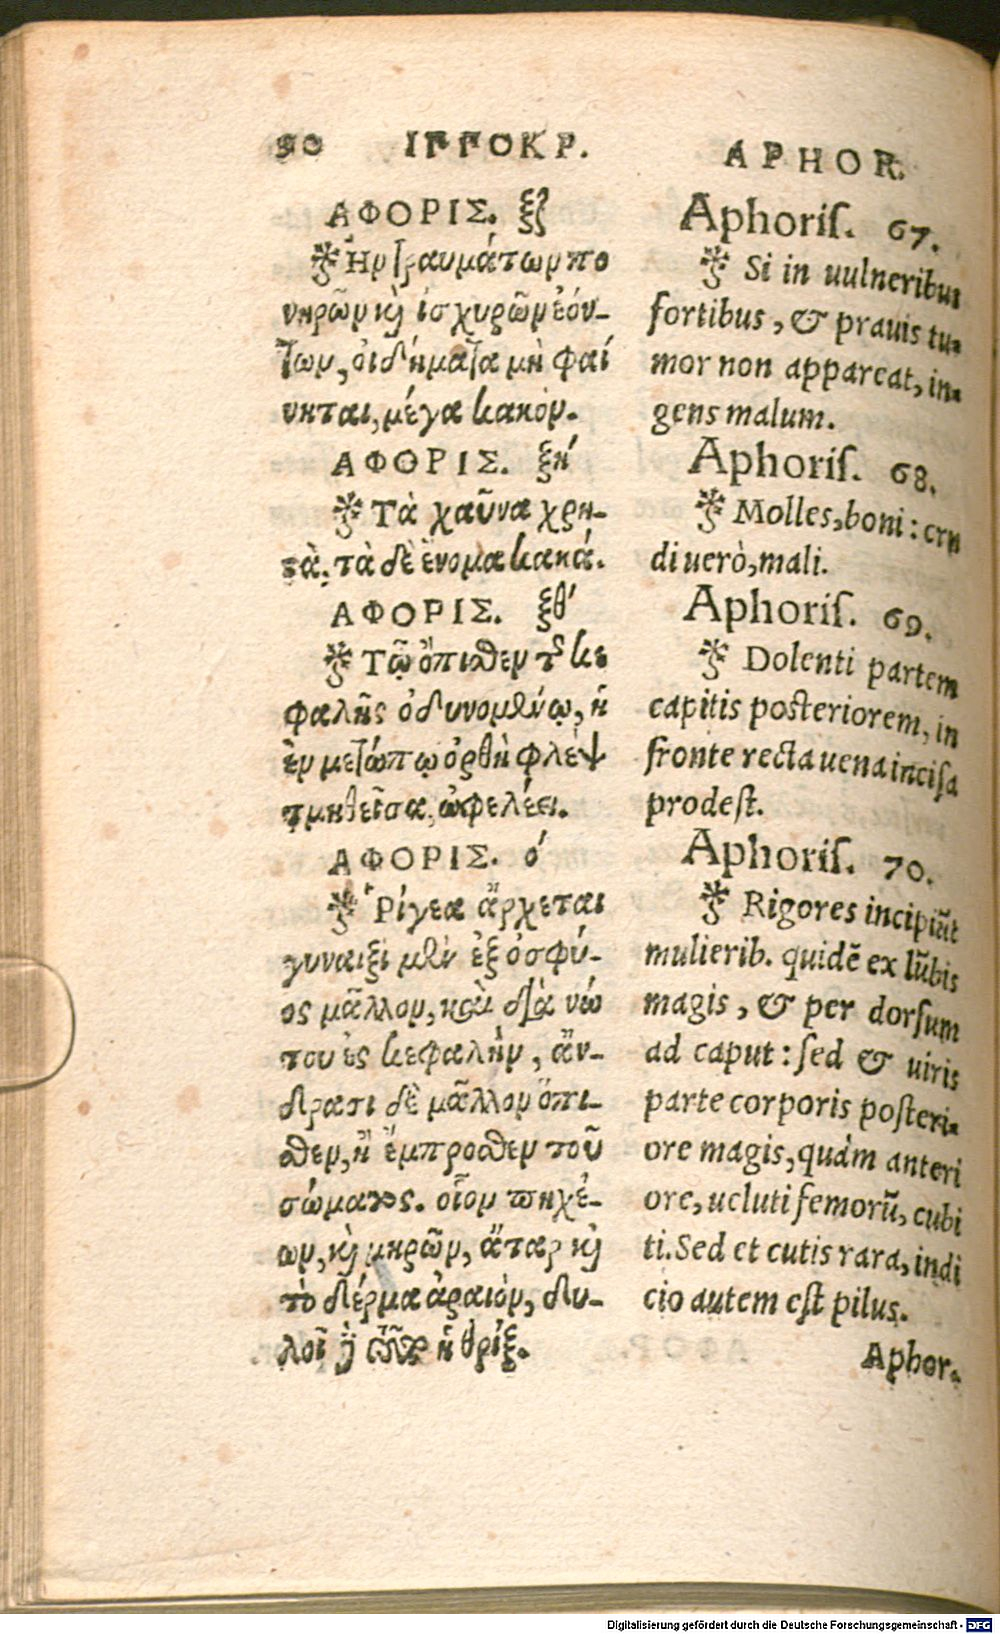 90 ΙΓΓΟΚΡ.
ΑΦΟΡΙΣ. ξζ
Ἢν τραυμάτων πο
νηρῶν κὶ ἰσχυρῶν ἐόν-
των, οἰδήματα μὴ φαί
νηται, μέγα κακόν.
ΑΦΟΡΙΣ. ξη′
Τὰ χαῦνα χρη-
τὰ, τὰ δὲ ἔνομα κακά.
ΑΦΟΡΙΣ. ξθ′
Τῷ ὄπιθεν τῆς κε
φαλῆς ὀδυνομένῳ, ἡ
ἐν μετώπῳ ὀρθὴ φλὲψ
τμηθεῖσα, ὠφελέει.
ΑΦΟΡΙΣ. ό
Ῥίγεα ἄρχεται
γυναιξὶ μὲν ἐξ ὀσφύ-
ος μᾶλλον, καὶ διὰ νώ
του ἐς κεφαλὴν, ἄν-
δρασι δὲ μᾶλλον ὄπι-
θεν, ἢ ἔμπροθεν τοῦ
σώματος. οἷον πηχέ-
ων, κὶ μηρῶν, ἄταρ κὶ
τὸ δέρμα ἀραιὸν, δη-
λοῖ ἡ θρίξ.
APHOR.
Aphoris. 67.
Si in uulneribus
fortibus, & prauis tu-
mor non appareat, in-
gens malum.
Aphoris. 68.
Molles, boni: cru
di uerò, mali.
Aphoris. 69.
Dolenti partem
capitis posteriorem, in
fronte recta uena incisa
prodest.
Aphoris. 70.
Rigores incipiũt
mulierib. quidẽ ex lũbis
magis, & per dorsum
ad caput: sed & uiris
parte corporis posteri-
ore magis, quàm anteri
ore, ueluti femorũ, cubi
ti. Sed et cutis rara, indi
cio autem est pilus.
Aphor.
Digitalisierung gefördert durch die Deutsche Forschungsgemeinschaft - DFG